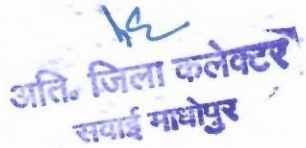 अति. जिला कलेक्टर
सवाई माधोपुर